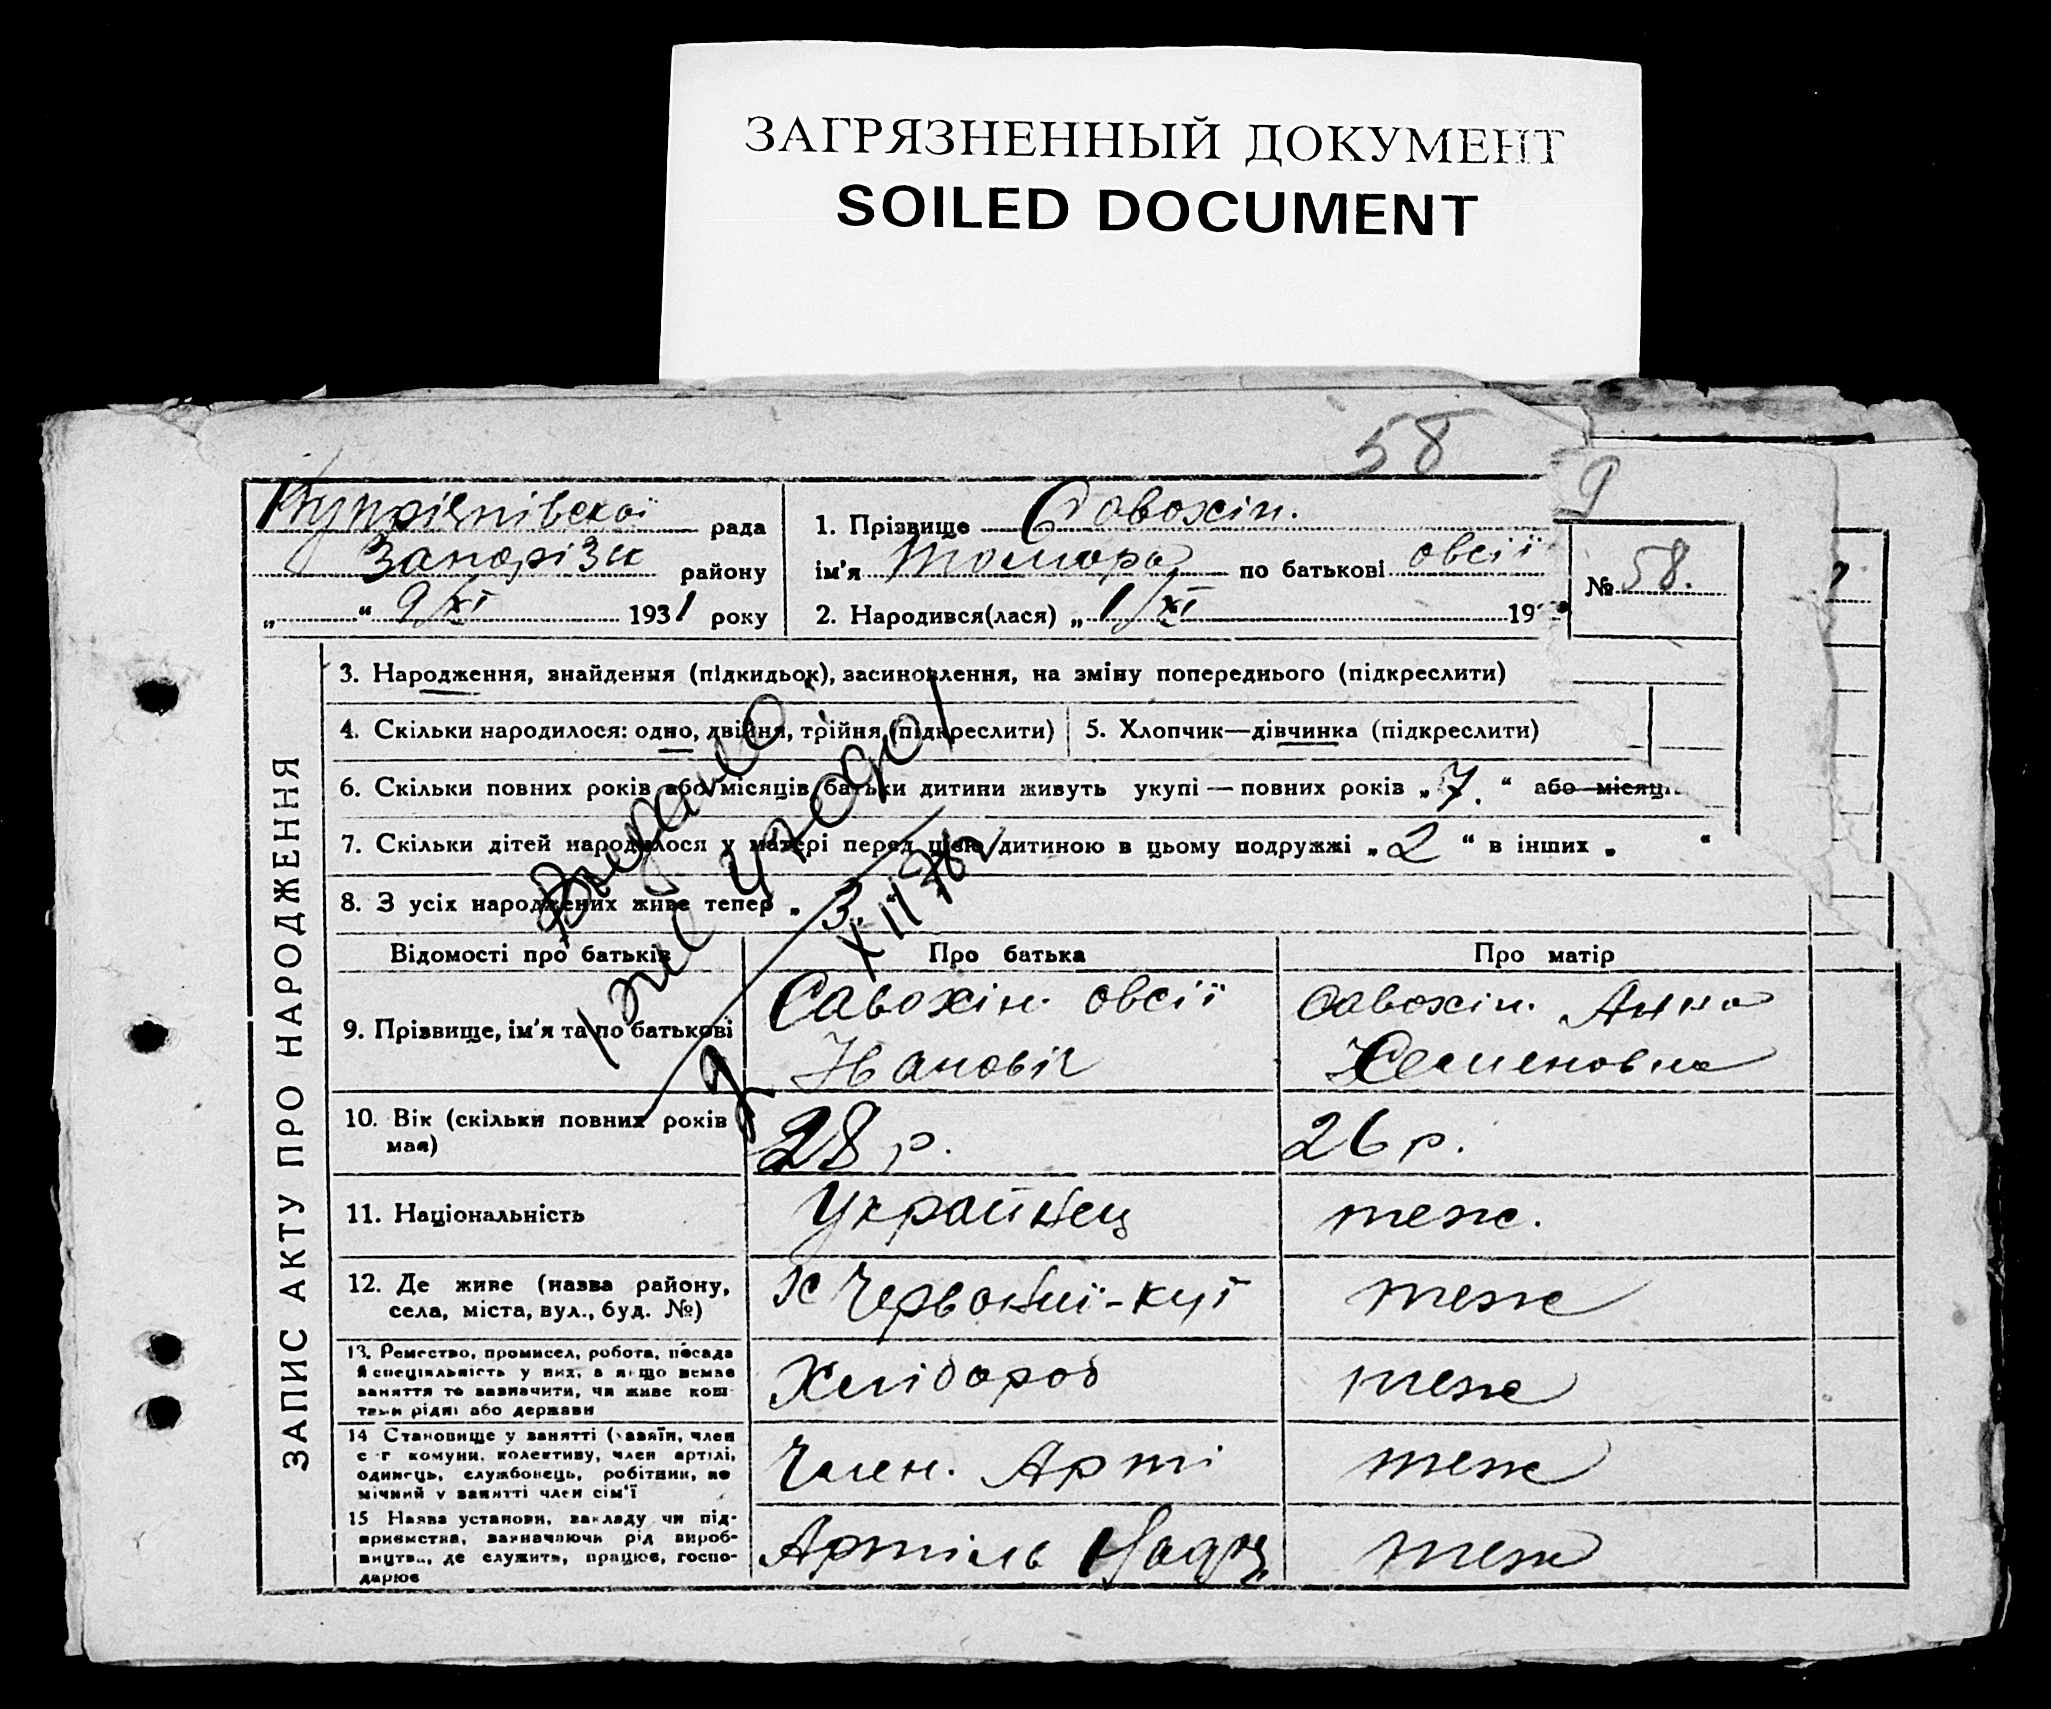 ЗАГРЯЗНЕННЫЙ ДОКУМЕНТ
SOILED DOCUMENT
58
9
Купріянівскої рада
Запорізк району
„ “ 9/XI 1931 року
1. Прізвище Савохін.
ім'я Томара по батькові овсії
2. Народився(лася) „ 1/XI 19
№ 58.
ЗАПИС АКТУ ПРО НАРОДЖЕННЯ
3. Народження, знайдення (підкидьок), засиновлення, на зміну попереднього (підкреслити)
4. Скільки народилося: одно, двійня, трійня (підкреслити) 5. Хлопчик—дівчинка (підкреслити)
6. Скільки повних років або місяців батьки дитини живуть укупі — повних років „ 7. “ або місяц
7. Скільки дітей народилося у матері перед цією дитиною в цьому подружжі „ 2 “ в інших „ “
8. З усіх народжених живе тепер „ 3 “
Відомості про батьків Про батька Про матір
9. Прізвище, ім'я та по батькові
Савохін. овсії
Івановіч
Савохін. Анна
Семеновна
10. Вік (скільки повних років
має)
28 р. 26 р.
11. Національність Українец теж.
12. Де живе (назва району,
села, міста, вул., буд. №)
Х Червоний-кут теж
13. Ремество, промисел, робота, посада
й спеціяльність у них, а якщо немає
заняття то зазначити, чи живе кош-
тами рідні або держави
Хлібороб теж
14 Становище у занятті (хазяїн, член
с-г комуни, колективу, член артілі,
одинець, службовець, робітник, по
мічний у занятті член сім'ї
Член. Арті теж
15 Назва установи, закладу чи під-
приємства, зазначаючи рід вироб-
ництва, де служить, працює, госпо-
дарює
Артіль теж